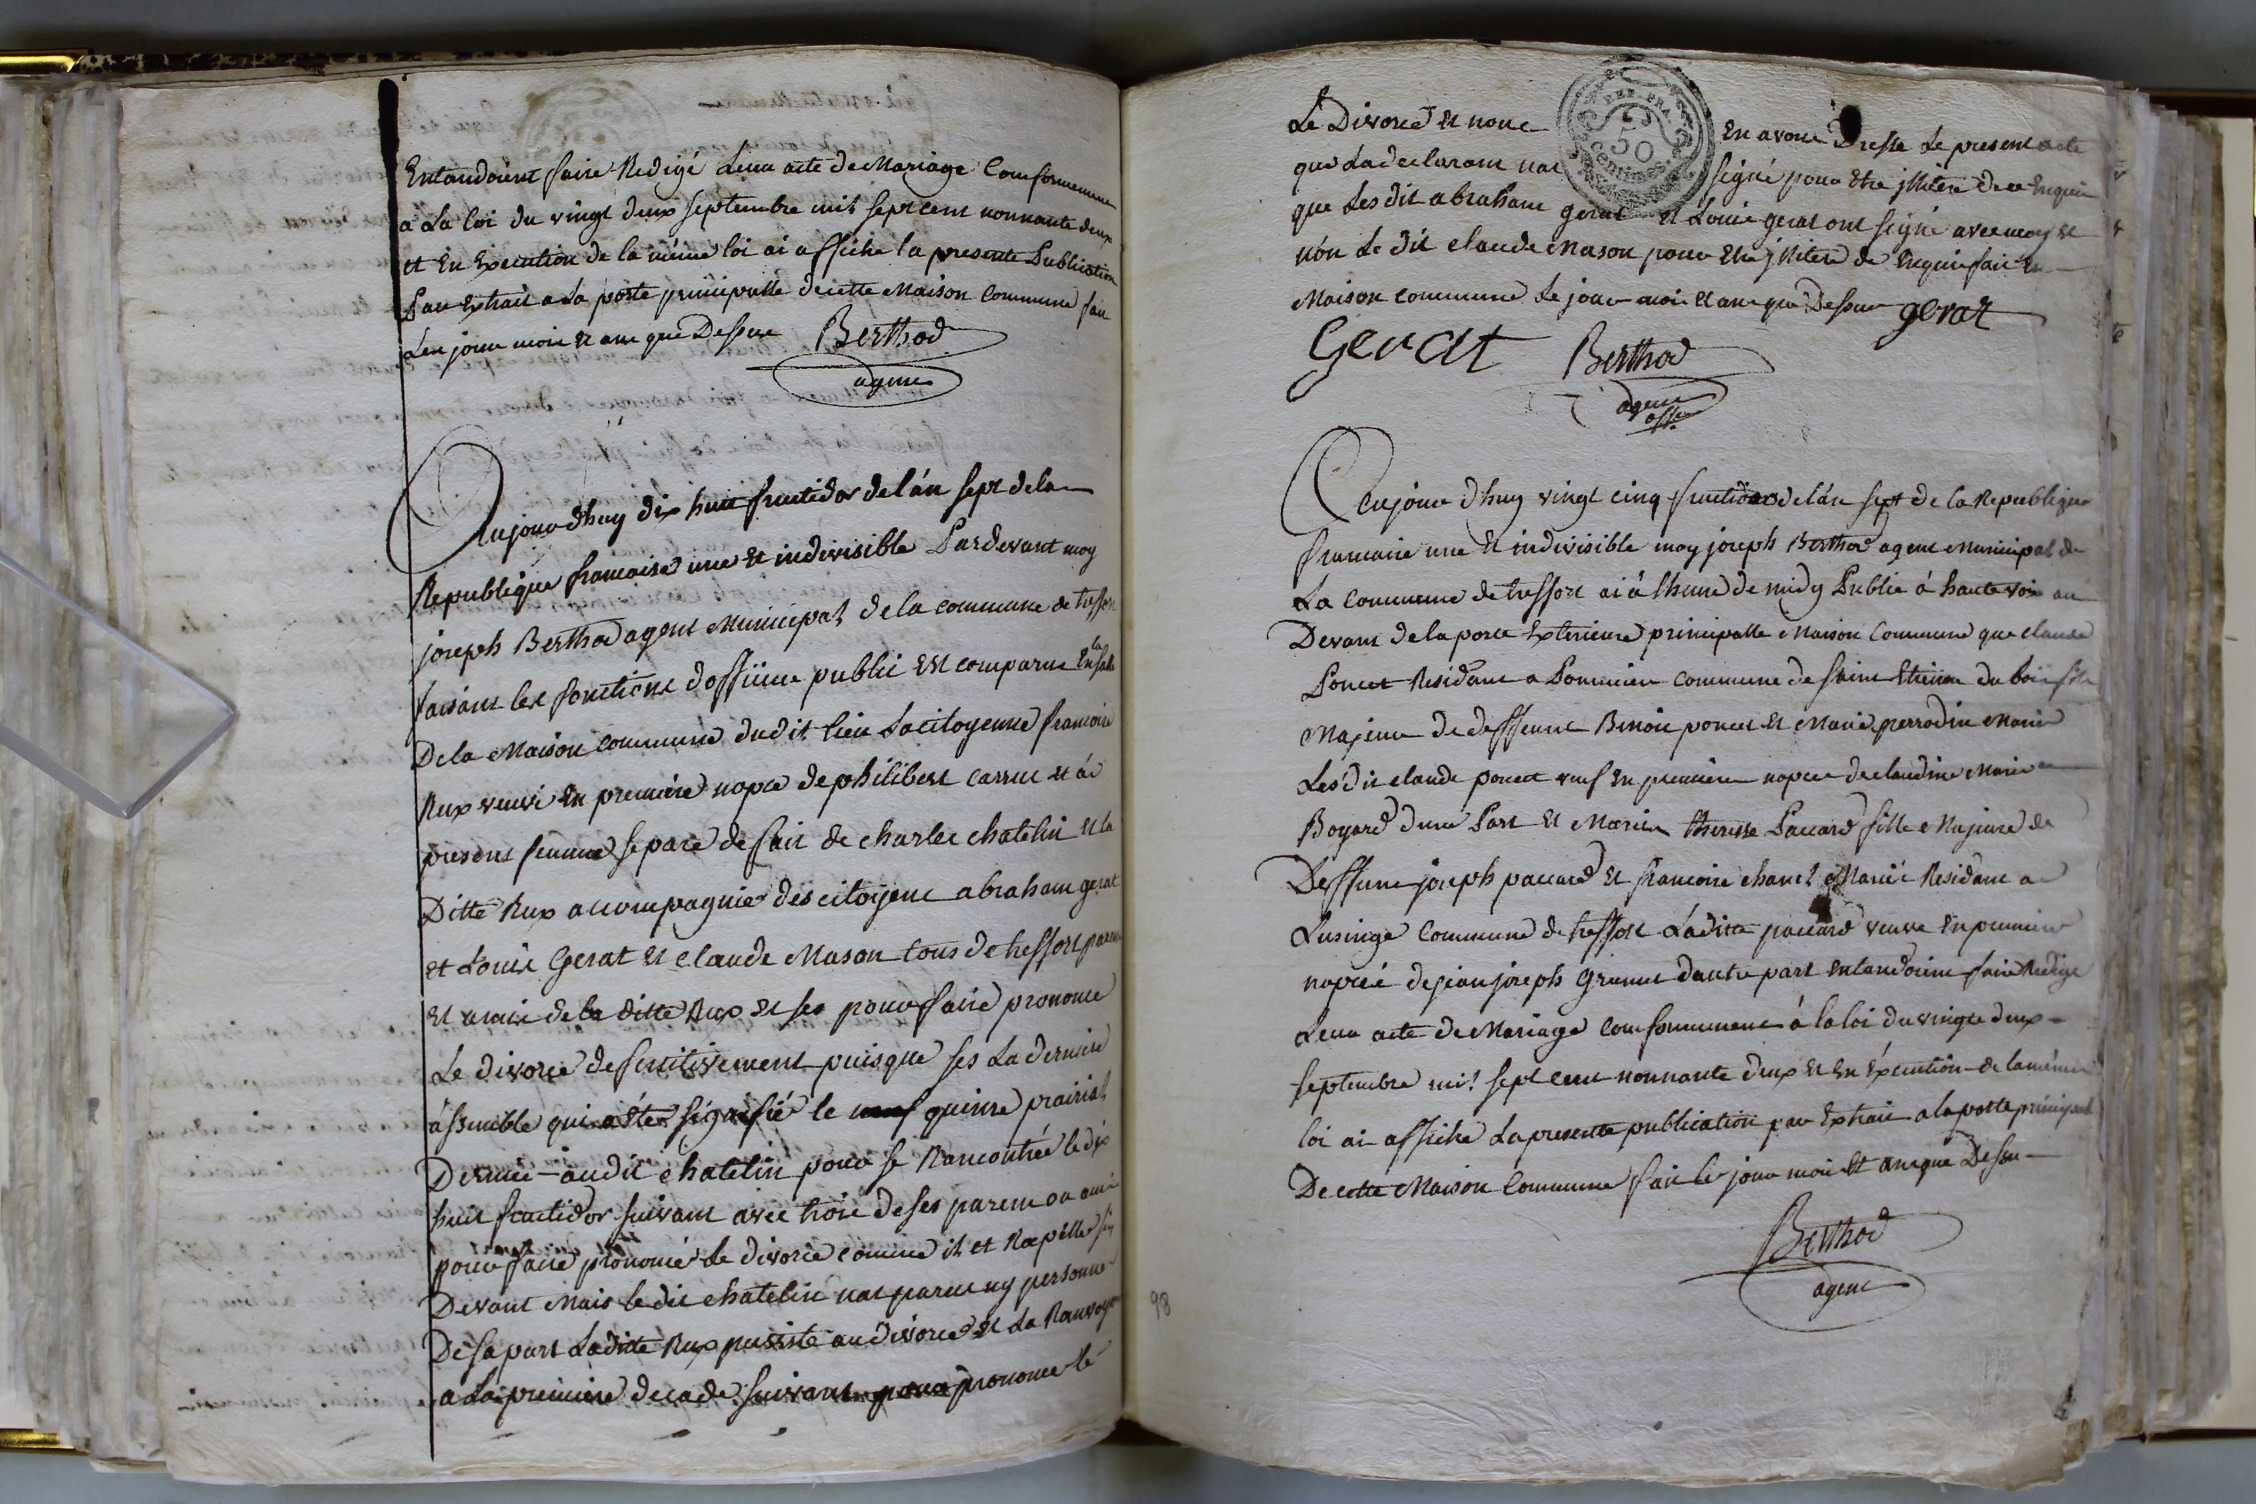 Entandoient faire Redigé Leur acte de Mariage Comformement
a La loi du vingt deux septembre mil sept cent nonnante deux
et En Execution de la méme loi ai affiché la presente Publication
Par Extrait a La porte principalle de cette Maison Commune fait
Les jour moi et an que Dessus Berthod
agent
Aujourdhuy dix huit fructidor de lán sept de la
Republéque francaise une Et indivisible Pardevant moy
joseph Berthod agent Municipal de la commune de treffort
faisant les fonctions dofficier public Est comparue En la salle
De la Maison commune dudit lieu La citoyenne francoise
Rux veuve En premiere nopce de philibert carruc et áu
present femme separé de fait de charles chatelin Et la
Ditte Rux accompagnier des citoyens abraham gerat
et Louis Gerat Et Claude Mason tous de treffort parens
Et amis de la ditte Rux Et ses pour faire prononcé
Le divorce deffinitivement puisque ses La derniere
ássemblé qui a êter signifié le quinze prairial
Dernier audit chatelin pour se Rancontrée le dix
huit fructidor suivant avec trois de ses parens ou ami
pour faire prononcé Le divorce comme il et Rapellé sy
Devant Mais le dit chatelin nat parut ny personne
De sa part Laditte Rux persiste au divorce Et La Ranvoyer
a La premiere decade suivant pour prononcer le
98
Le Divorce Et nous En avons Dressé Le present acte
que La declarant nat signé pour Etre jllitere de ce Enquis
que Lesdit abraham gerat et Louis gerat ont signé avec moy et
nón Le dit claude Mason pour Etre jllitere de Enquis fait En
Maison commune Le jour moi et an que Dessus gerat
REP. FRA.
50
centimes
Gerat Berthod
agent
off.
Aujourdhuy vingt cinq fructidor de lán sept de la Republique
francaise une Et indivisible moy joseph Berthod agent Municipal de
La Commune de treffort ai á lheure de midy Publié á haute voix au
Devant de la porte Exterieure principalle Maison Commune que claude
Poncet Residant a Pommier commune de saint Etienne du bois fils
Majeur de deffunt Benoit poncet Et Marie perrodin Marié
Lesdit claude poncet veuf En premiere nopce de claudine Marie
Boyard dune Part Et Marie theresse Paccard fille Majeure de
Deffunt joseph paccard Et francoise chanel Mariée Residant a
Lusinge Commune de treffort Laditte paccard veuve En premiere
nopcée de jean joseph Grumet dautre part Entandoient faire Redigé
Leur acte de Mariage Comformement á la loi du vingte deux
septembre mil sept cent nonnante deux Et En Éxécution de la méme
loi ai affiché La presente publication par Extrait a la porte principalle
De cette Maison Commune fait le jour moi Et an que Dessu
Berthod
agent